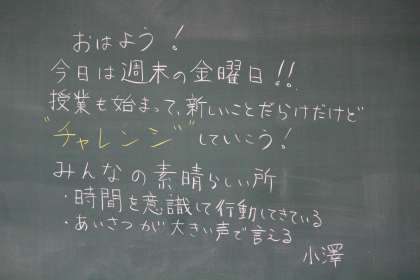 おはよう!
今日は週末の金曜日!!
授業も始まって、新しいことだらけだけど
"チャレンジ"していこう!
みんなの素晴らしい所
・時間を意識して行動してきている
・あいさつが大きい声で言える
小澤